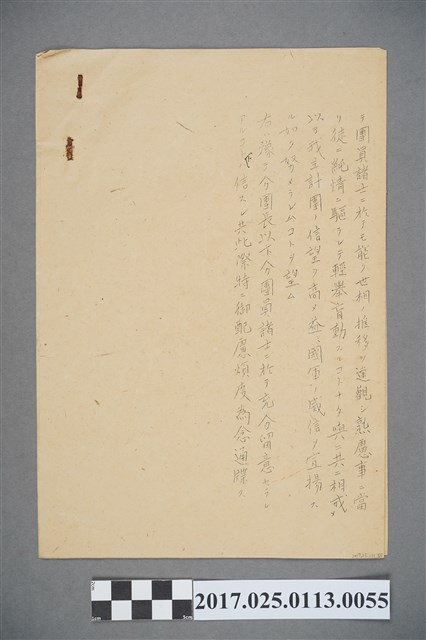 ヲ團員諸士ニ於テモ能ク世相ノ推移ヲ達觀シ熟慮事ニ當
リ徒ニ純情ニ驅ラレテ輕擧盲動スルコトナク與ニ共ニ相戒メ
以テ我主計團ノ信望ヲ高メ益々國軍ノ威信ヲ宣揚ス
ル如ク努メラレムコトヲ望ム
右ノ諸分團長以下分團員諸士ニ於テ充分留意セラレ
信スレ共此際特ニ御配慮煩度為念通牒ス
2017.025.0113.0055